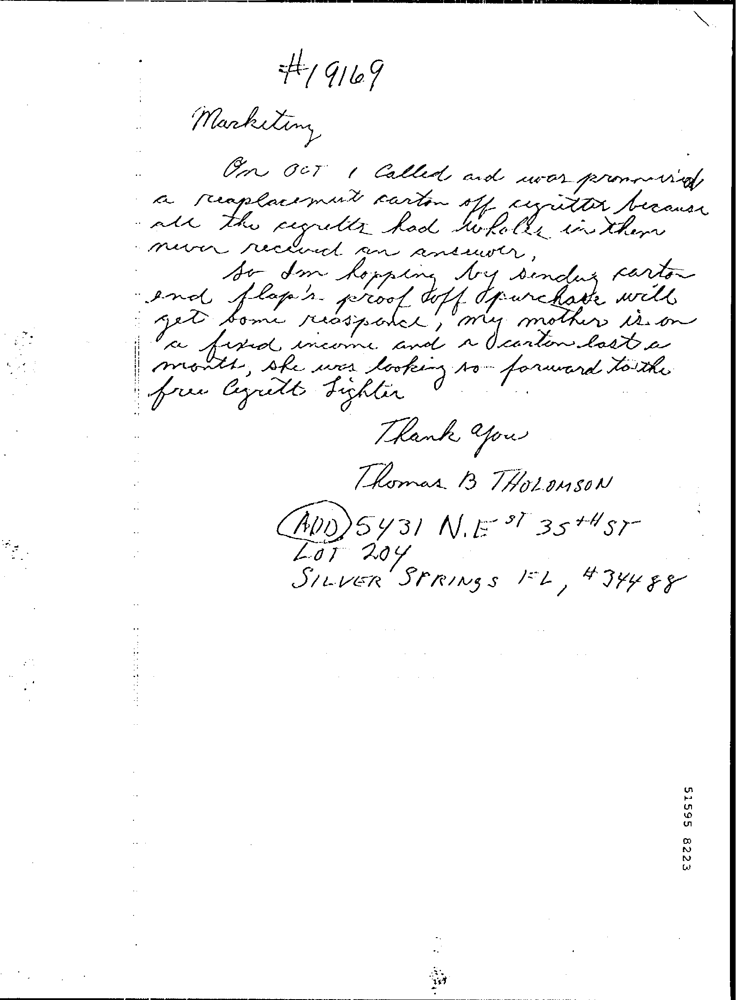 #19169
Marketing
On OCT 1 Called and was prommisid
a reaplacemint carton off cigrittes because
all the cigretts had wholes in them
never received an answer,
So Im hopping by sending carton
end flap's proof off purchase will
get some reasponce, my mother is on
a fixed income and a carton last a
month, she was looking so forward to the
free Cigrett Lighter
Thank you
Thomas B THOLOMSON
ADD 5431 N.E ST 35TH ST
LOT 204
SILVER SPRINGS FL, #34488
51595 8223